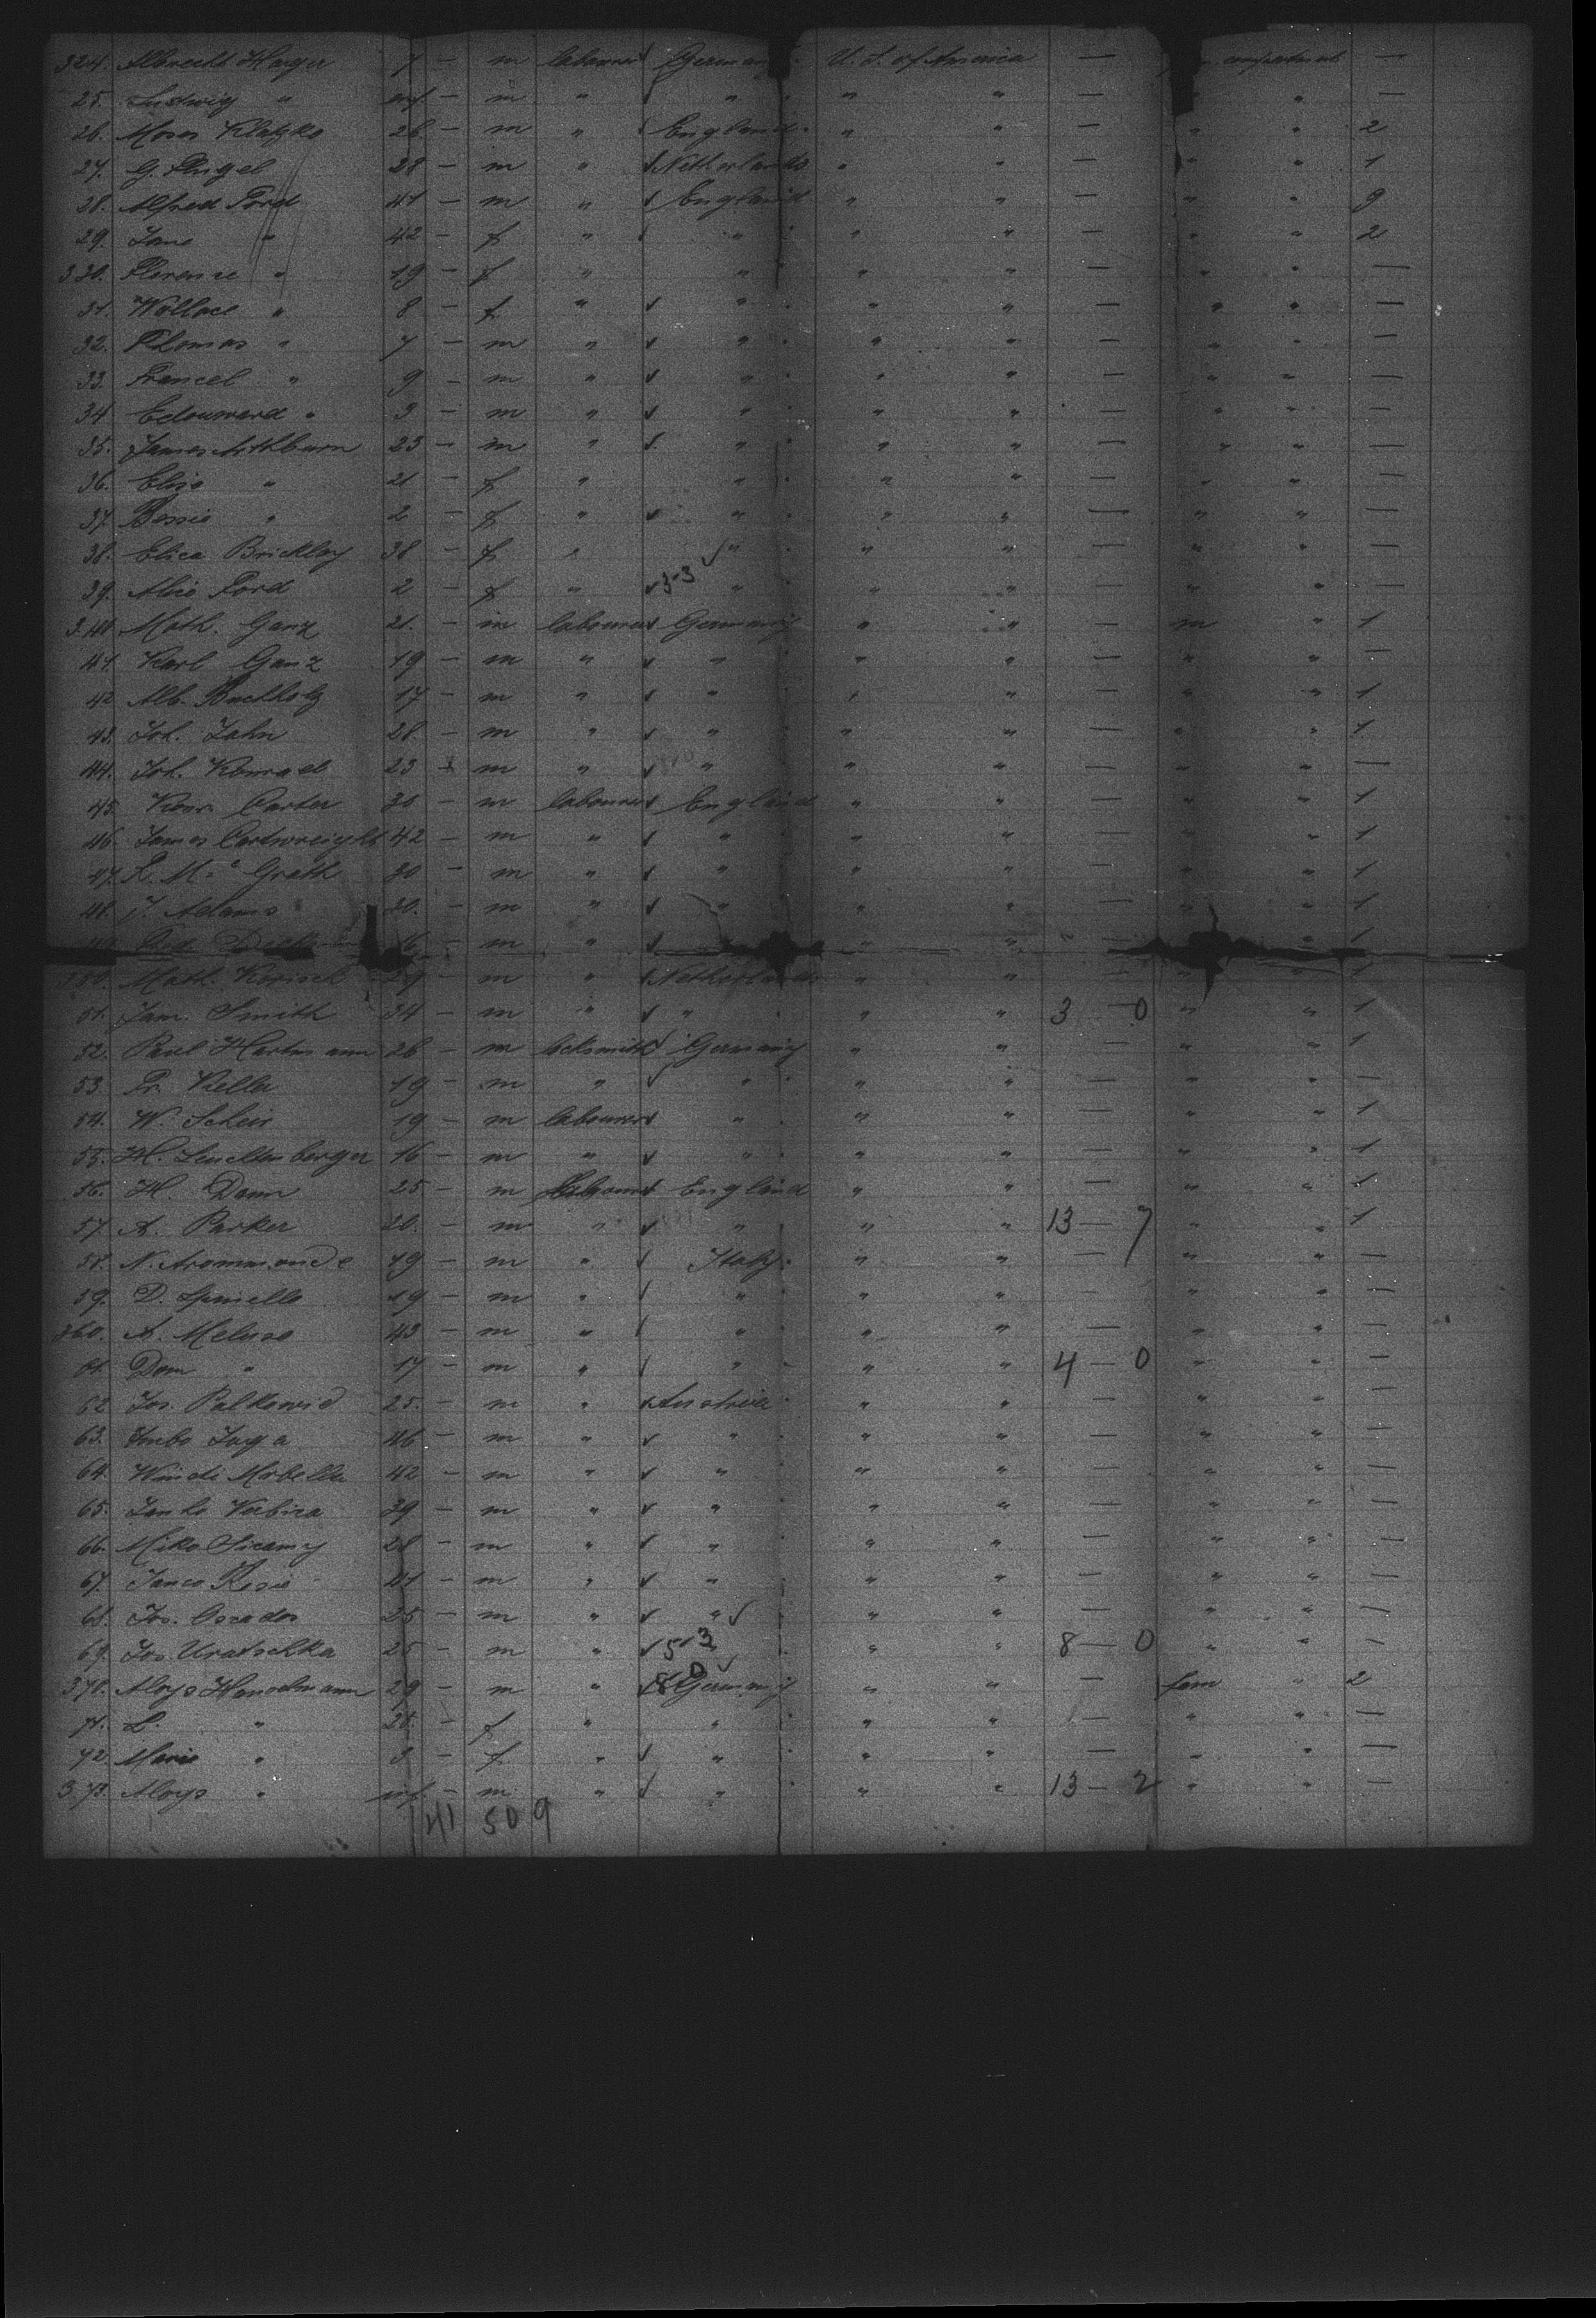 324. Albrecht Harger 7 — m labourer Germany U. S. of America — compartment —
25. Ludwig " inf — m " ✓ " " " — " " —
26. Moses Klatzko 26 — m " England " " — " " 2
27. G. Flugel 28 — m " ✓ Netherlands " " — " " 1
28. Alfred Ford 41 — m " ✓ England " " — " " 9
29. Jane " 42 — f " " " " — " " 2
330. Florence " 19 — f " " " " — " " —
31. Wallace " 8 — f " ✓ " " " — " " —
32. Thomas " 7 — m " ✓ " " " — " " —
33. " 9 — m " ✓ " " " — " " —
34. Edouward " 3 — m " ✓ " " " — " " —
35. James 23 — m " ✓ " " " — " " —
36. Elise " 21 — f " " " " — " " —
37. Bessie " 2 — f " ✓ " " " — " " —
38. Elica Brickley 38 — f " ✓ " " " — " " —
39. Alice Ford 2 — f " ✓ 3-3 " " " — " " —
340. Math. Ganz 21. — m labourer ✓ Germany " " — m " 1
41. Karl Ganz 19 — m " ✓ " " " — " " —
42. Alb. Buchholz 17 — m " ✓ " " " — " " 1
43. Joh. Zahn 28. — m " ✓ " " " — " " 1
44. Joh. Konrad 23 — m " ✓ " " " — " " —
45. Carter 30 — m labourer ✓ England " " — " " 1
46. James Cartwreight 42 — m " ✓ " " " — " " 1
47. Mc Grath 30 — m " ✓ " " " — " " 1
48. J. Adams 30. — m " ✓ " " " — " " 1
49. 16 — m " ✓ " " " — " " 1
350. Math. Korisch 29 — m " ✓ Netherlands " " — " " 1
51. Jam. Smith 34 — m " ✓ " " " 3 — 0 " " 1
52. Paul Hartmann 26 — m locksmith ✓ Germany " " — " " 1
53. Fr. Keller 19 — m " ✓ " " " — " " —
54. W. Schein 19 — m labourer ✓ " " " — " " 1
55. H. Leuchtenberger 16 — m " ✓ " " " — " " 1
56. H. Dann 25 — m labourer ✓ England " " — " " 1
57. A. Parker 20. — m " ✓ " " " 13 — 7 " " 1
58. 19 — m " ✓ Italy " " — " " —
59. D. Spinello 19 — m " ✓ " " " — " " —
360. A. Meluso 43 — m " ✓ " " " — " " —
61. Dom " 17 — m " ✓ " " " 4 — 0 " " —
62. Jos. 25. — m " ✓ Austria " " — " " —
63. Juga 46 — m " ✓ " " " — " " —
64. 42 — m " ✓ " " " — " " —
65. Janko 39 — m " ✓ " " " — " " —
66. Miko 28 — m " ✓ " " " — " " —
67. Janco 41 — m " ✓ " " " — " " —
68. Jos. 25 — m " ✓ " ✓ " " — " " —
69. Jos. Uratschka 25 — m " ✓ 5-3 " " 8 — 0 " " —
370. Aloys Handmann 29 — m " ✓ Germany " " — fam " 2
71. L. " 28. — f " " " " — " " —
72. Marie " 3 — f " ✓ " " " — " " —
373. Aloys " inf — m " ✓ " " " 13 — 2 " " —
41 50 9